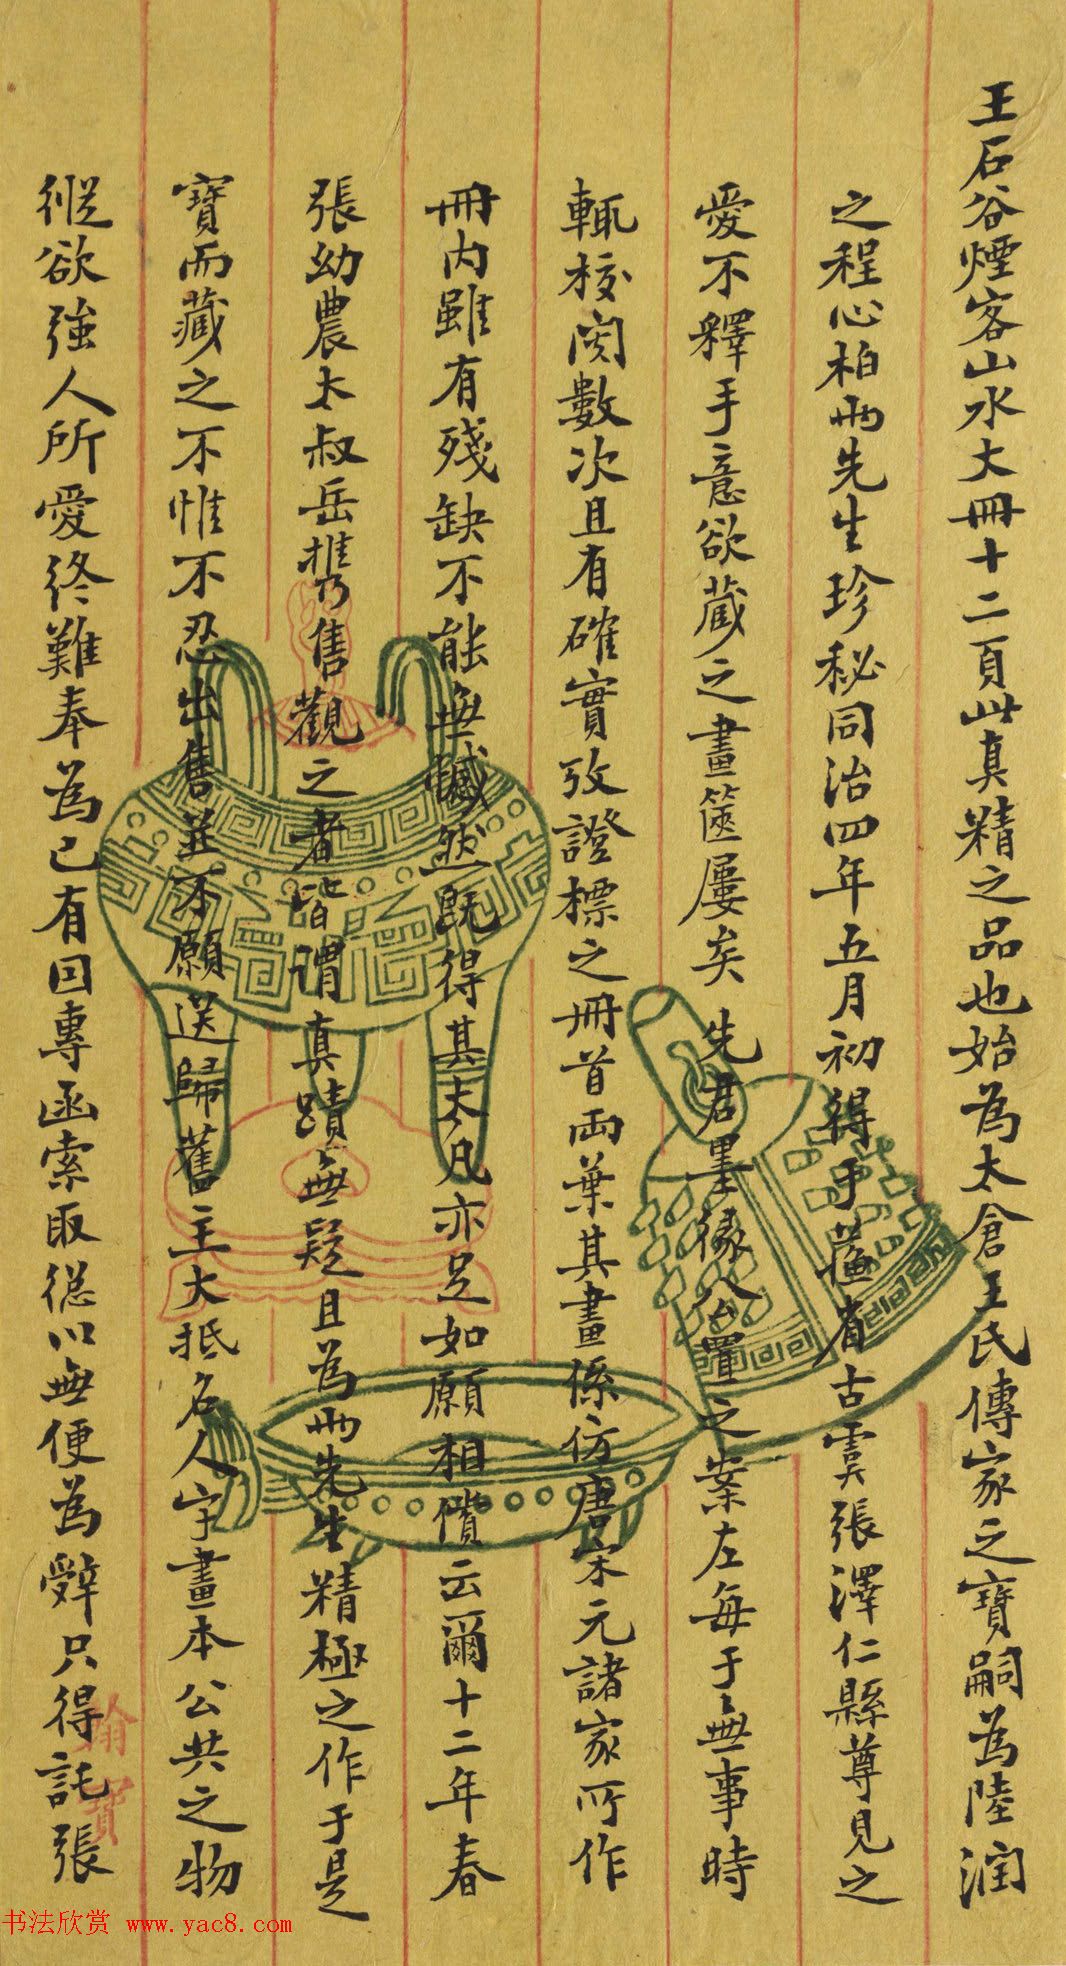 王石谷煙客山水大冊十二頁此真精之品也始為太倉王氏傳家之寶嗣為陸潤
之程心柏兩先生珍秘同治四年五月初得手蘓省古雲張澤仁縣尊見之
愛不釋手意欲藏之畫篋屢矣先君墨緣公置之案左每于無事時
輒校閱數次且有確實攷證標之冊首兩葉其畫係仿唐宋元諸家所作
冊內雖有殘缺不能無憾然既得其大凡亦足如願相償云爾十二年春
張幼農太叔岳攜售觀之者皆謂真蹟無疑且為兩先生精極之作于是
寶而藏之不惟不忍出售並不願送歸舊主大抵名人字畫本公共之物
縱欲強人所愛終難奉為己有回專函索取從以無便為辭只得託張
書法欣赏 www.yac8.com